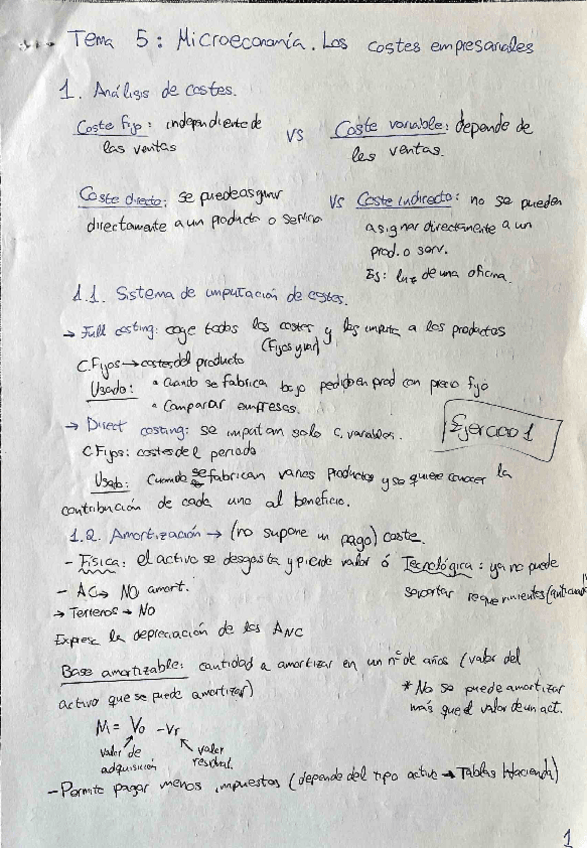 Tema 5: Microeconomía. Los costes empresariales
1. Análisis de costes.
Coste fijo: independiente de las ventas
VS
Coste variable: depende de las ventas.
Coste directo: se puede asignar directamente a un producto o servicio
VS Coste indirecto: no se pueden asignar directamente a un prod. o serv.
Ej: luz de una oficina.
1.1. Sistema de imputación de costes.
→ Full costing: coge todos los costes y los imputa a los productos
(Fijos y var)
C.Fijos → costes del producto
Usado: • Cuando se fabrica bajo pedido en prod con precio fijo
• Comparar empresas.
→ Direct costing: se imputan solo c. variables.
Ejercicio 1
C Fijos: costes del periodo
Usado: Cuando se fabrican varios productos y se quiere conocer la
contribución de cada uno al beneficio.
1.2. Amortización → (no supone un pago) coste.
- Física: el activo se desgasta y pierde valor ó Tecnológica: ya no puede
soportar requerimientos
- AC → NO amort.
→ Terrenos → No
Expresa la depreciación de los ANC
Base amortizable: cantidad a amortizar en un nº de años (valor del
activo que se puede amortizar)
* No se puede amortizar
más que el valor de un act.
M = Vo - Vr
valor de adquisición
valor residual.
- Permite pagar menos impuestos (depende del tipo activo → Tablas Hacienda)
1